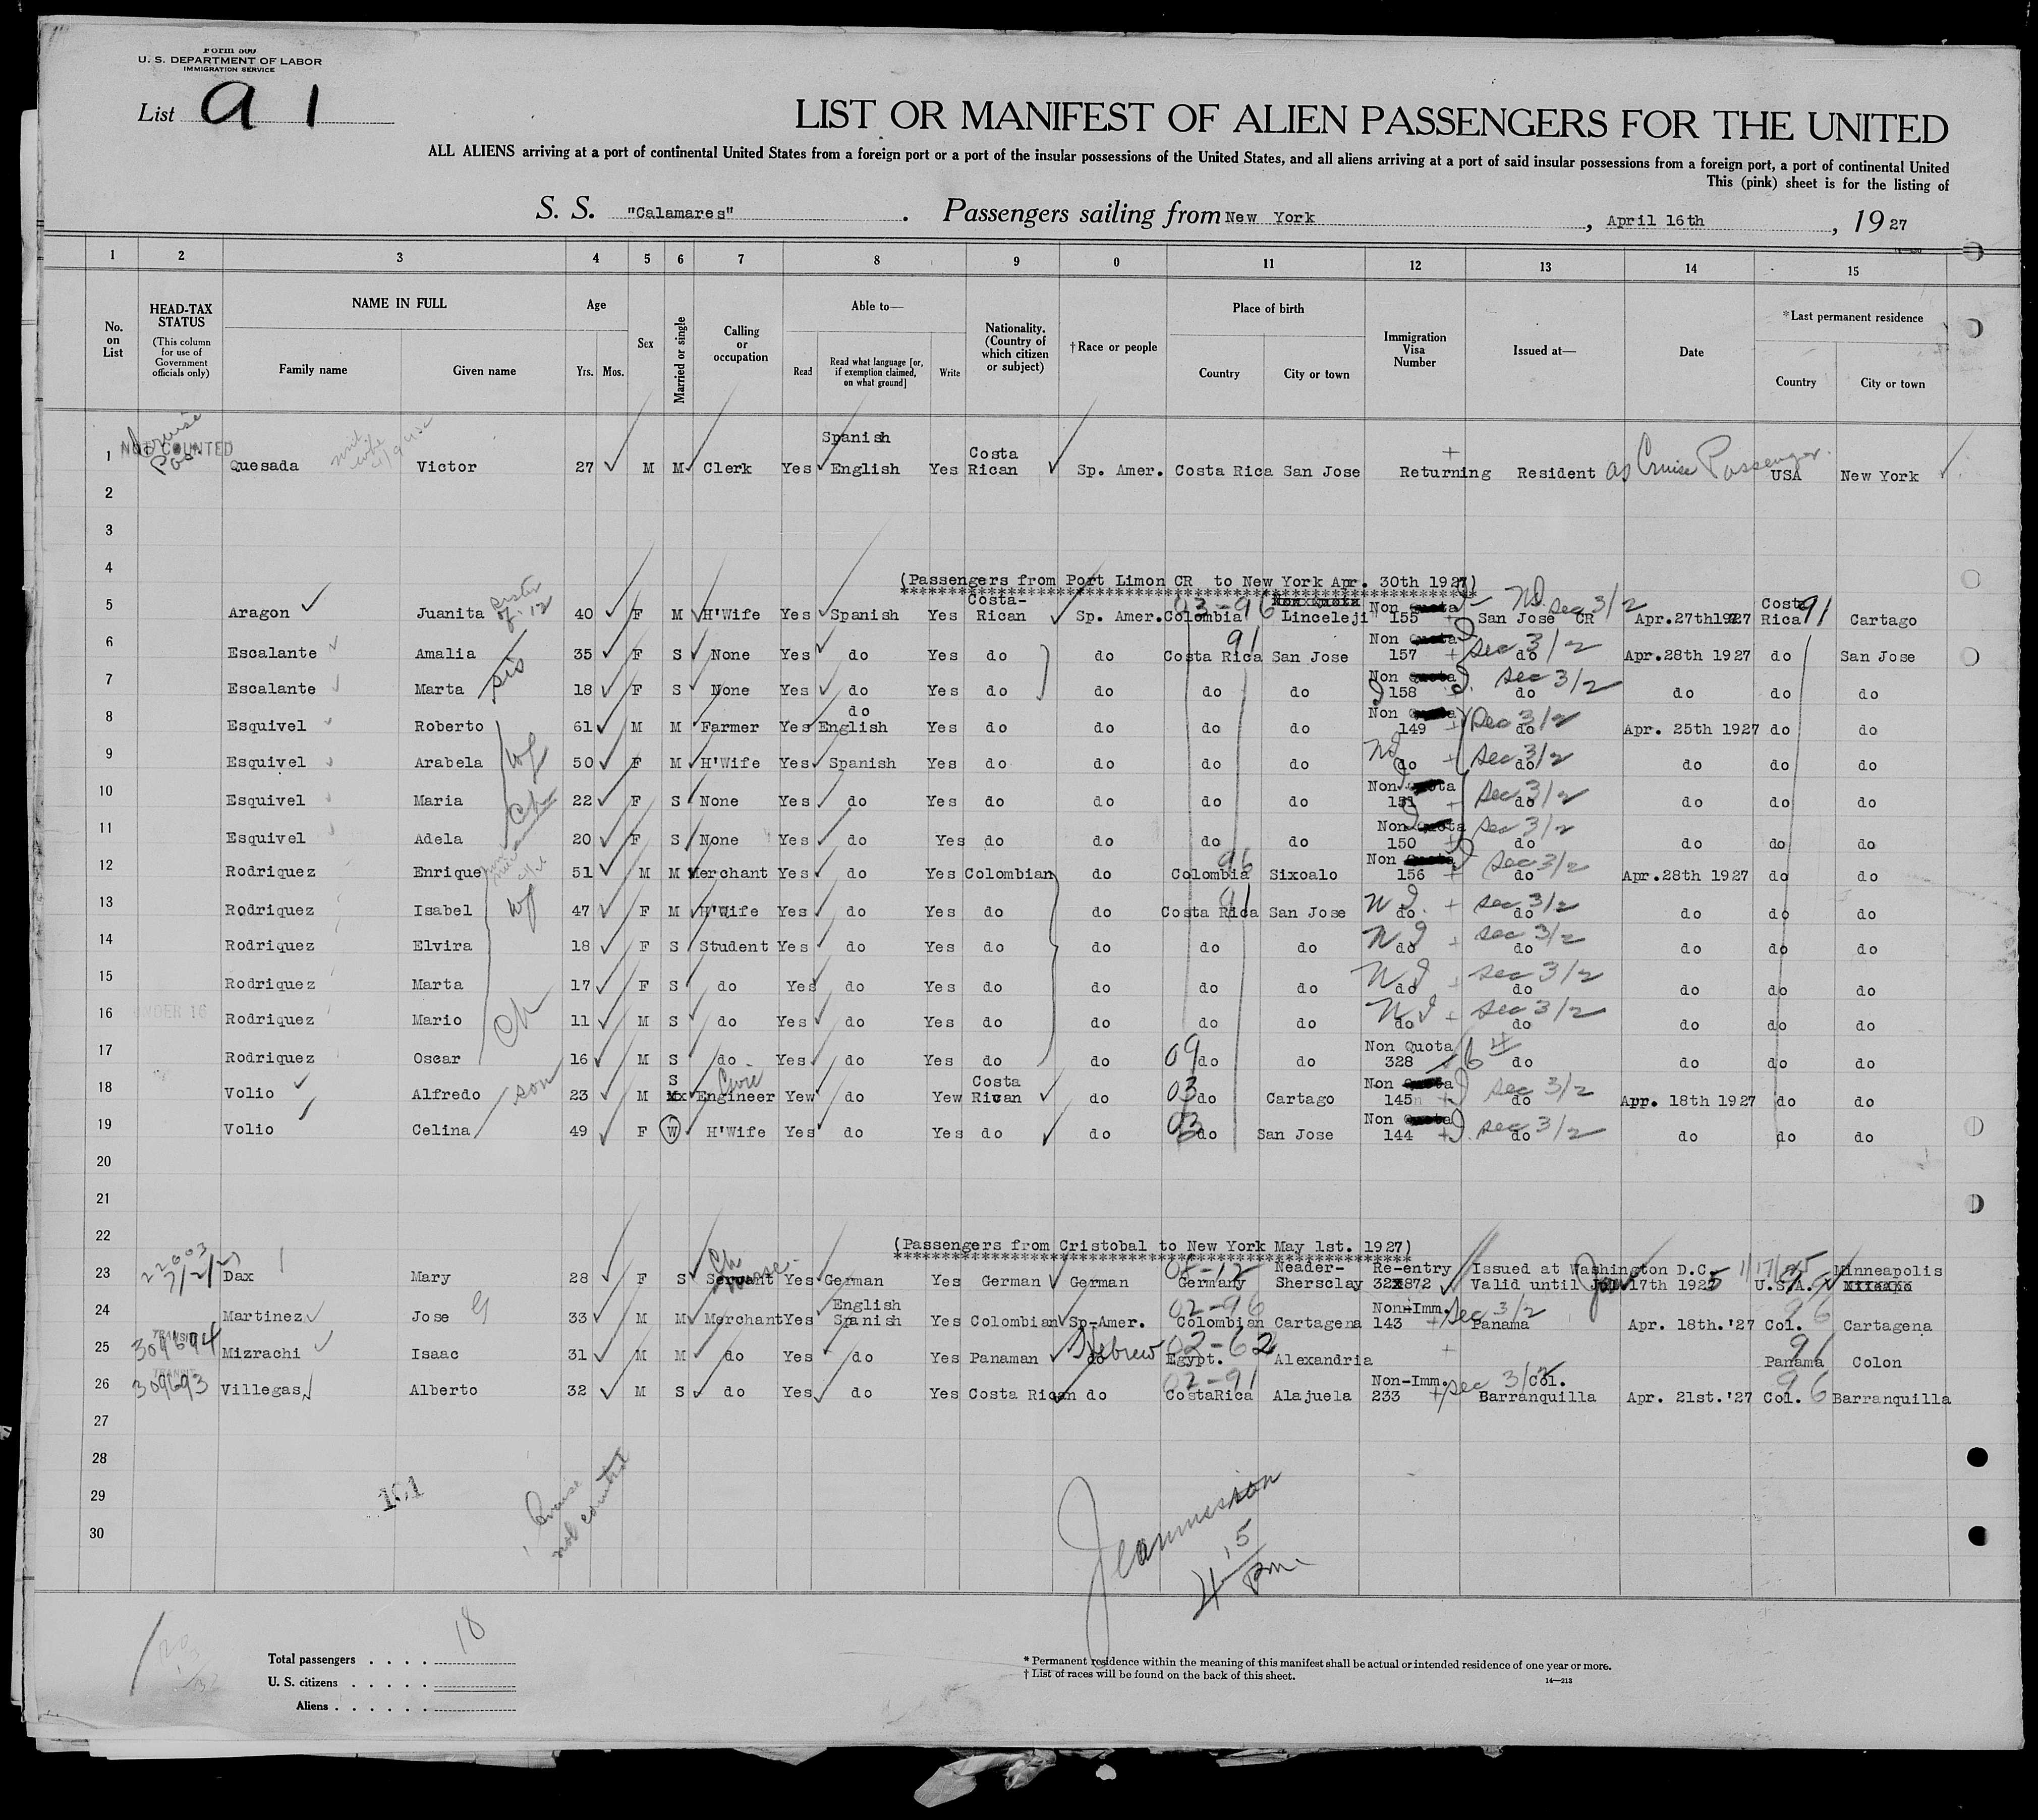 Form 500
U. S. DEPARTMENT OF LABOR
IMMIGRATION SERVICE
List a 1
LIST OR MANIFEST OF ALIEN PASSENGERS FOR THE UNITED
ALL ALIENS arriving at a port of continental United States from a foreign port or a port of the insular possessions of the United States, and all aliens arriving at a port of said insular possessions from a foreign port, a port of continental United
This (pink) sheet is for the listing of
S. S. "Calamares". Passengers sailing from New York, April 16th, 1927
1 2 3 4 5 6 7 8 9 0 11 12 13 14 15
No. on List
HEAD-TAX STATUS (This column for use of Government officials only)
NAME IN FULL Family name Given name
Age Yrs. Mos.
Sex
Married or single
Calling or occupation
Able to— Read Read what language [or, if exemption claimed, on what ground] Write
Nationality. (Country of which citizen or subject)
†Race or people
Place of birth Country City or town
Immigration Visa Number
Issued at—
Date
*Last permanent residence Country City or town
1 NOT COUNTED Cruise Pas. Quesada Victor 27 M M Clerk Yes Spanish English Yes Costa Rican Sp. Amer. Costa Rica San Jose Returning Resident as Cruise Passenger USA New York
2
3
4
(Passengers from Port Limon CR to New York Apr. 30th 1927)
5 Aragon Juanita sister of 12 40 F M H'Wife Yes Spanish Yes Costa-Rican Sp. Amer. Colombia 03-96 Linceleji Non Quota 155 San Jose CR Sec 3/2 Apr.27th 1927 Costa Rica 91 Cartago
6 Escalante Amalia 35 F S None Yes do Yes do do Costa Rica 91 San Jose Non Quota 157 do Sec 3/2 Apr.28th 1927 do San Jose
7 Escalante Marta sis 18 F S None Yes do Yes do do do do Non Quota 158 do Sec 3/2 do do do
8 Esquivel Roberto 61 M M Farmer Yes do English Yes do do do do Non Quota 149 do Sec 3/2 Apr. 25th 1927 do do
9 Esquivel Arabela wf 50 F M H'Wife Yes Spanish Yes do do do do do do Sec 3/2 do do do
10 Esquivel Maria Ch 22 F S None Yes do Yes do do do do Non Quota 151 do Sec 3/2 do do do
11 Esquivel Adela 20 F S None Yes do Yes do do do do Non Quota 150 do Sec 3/2 do do do
12 Rodriquez Enrique 51 M M Merchant Yes do Yes Colombian do Colombia 96 Sixoalo Non Quota 156 do Sec 3/2 Apr.28th 1927 do do
13 Rodriquez Isabel wf 47 F M H'Wife Yes do Yes do do Costa Rica 91 San Jose do do Sec 3/2 do do do
14 Rodriquez Elvira 18 F S Student Yes do Yes do do do do do do Sec 3/2 do do do
15 Rodriquez Marta 17 F S do Yes do Yes do do do do do do Sec 3/2 do do do
16 UNDER 16 Rodriquez Mario Ch 11 M S do Yes do Yes do do do do do do Sec 3/2 do do do
17 Rodriquez Oscar 16 M S do Yes do Yes do do 09 do do Non Quota 328 do do do do
18 Volio Alfredo son 23 M S Civil Engineer Yew do Yew Costa Rican do 03 do Cartago Non Quota 145 do Sec 3/2 Apr. 18th 1927 do do
19 Volio Celina 49 F W H'Wife Yes do Yes do do 03 do San Jose Non Quota 144 do Sec 3/2 do do do
20
21
22
(Passengers from Cristobal to New York May 1st. 1927)
23 Dax Mary 28 F S Servant Yes German Yes German German Germany Neader-Shersclay Re-entry 32x872 Issued at Washington D.C. Valid until 17th 1925 U.S.A. Minneapolis
24 Martinez Jose G 33 M M Merchant Yes English Spanish Yes Colombian Sp-Amer. Colombian 02-96 Cartagena Non-Imm. 143 Panama Sec 3/2 Apr. 18th.'27 Col. 96 Cartagena
25 TRANSIT 309694 Mizrachi Isaac 31 M M do Yes do Yes Panaman do Hebrew Egypt. 02-62 Alexandria Panama 91 Colon
26 TRANSIT 309693 Villegas Alberto 32 M S do Yes do Yes Costa Rican do CostaRica 02-91 Alajuela Non-Imm. 233 Sec 3/2 Col. Barranquilla Apr. 21st.'27 Col. 96 Barranquilla
27
28
29
30
101
Cruise not counted
4 15 pm
Total passengers . . . . 18
U. S. citizens . . . . .
Aliens . . . . . .
* Permanent residence within the meaning of this manifest shall be actual or intended residence of one year or more.
† List of races will be found on the back of this sheet.
14—213